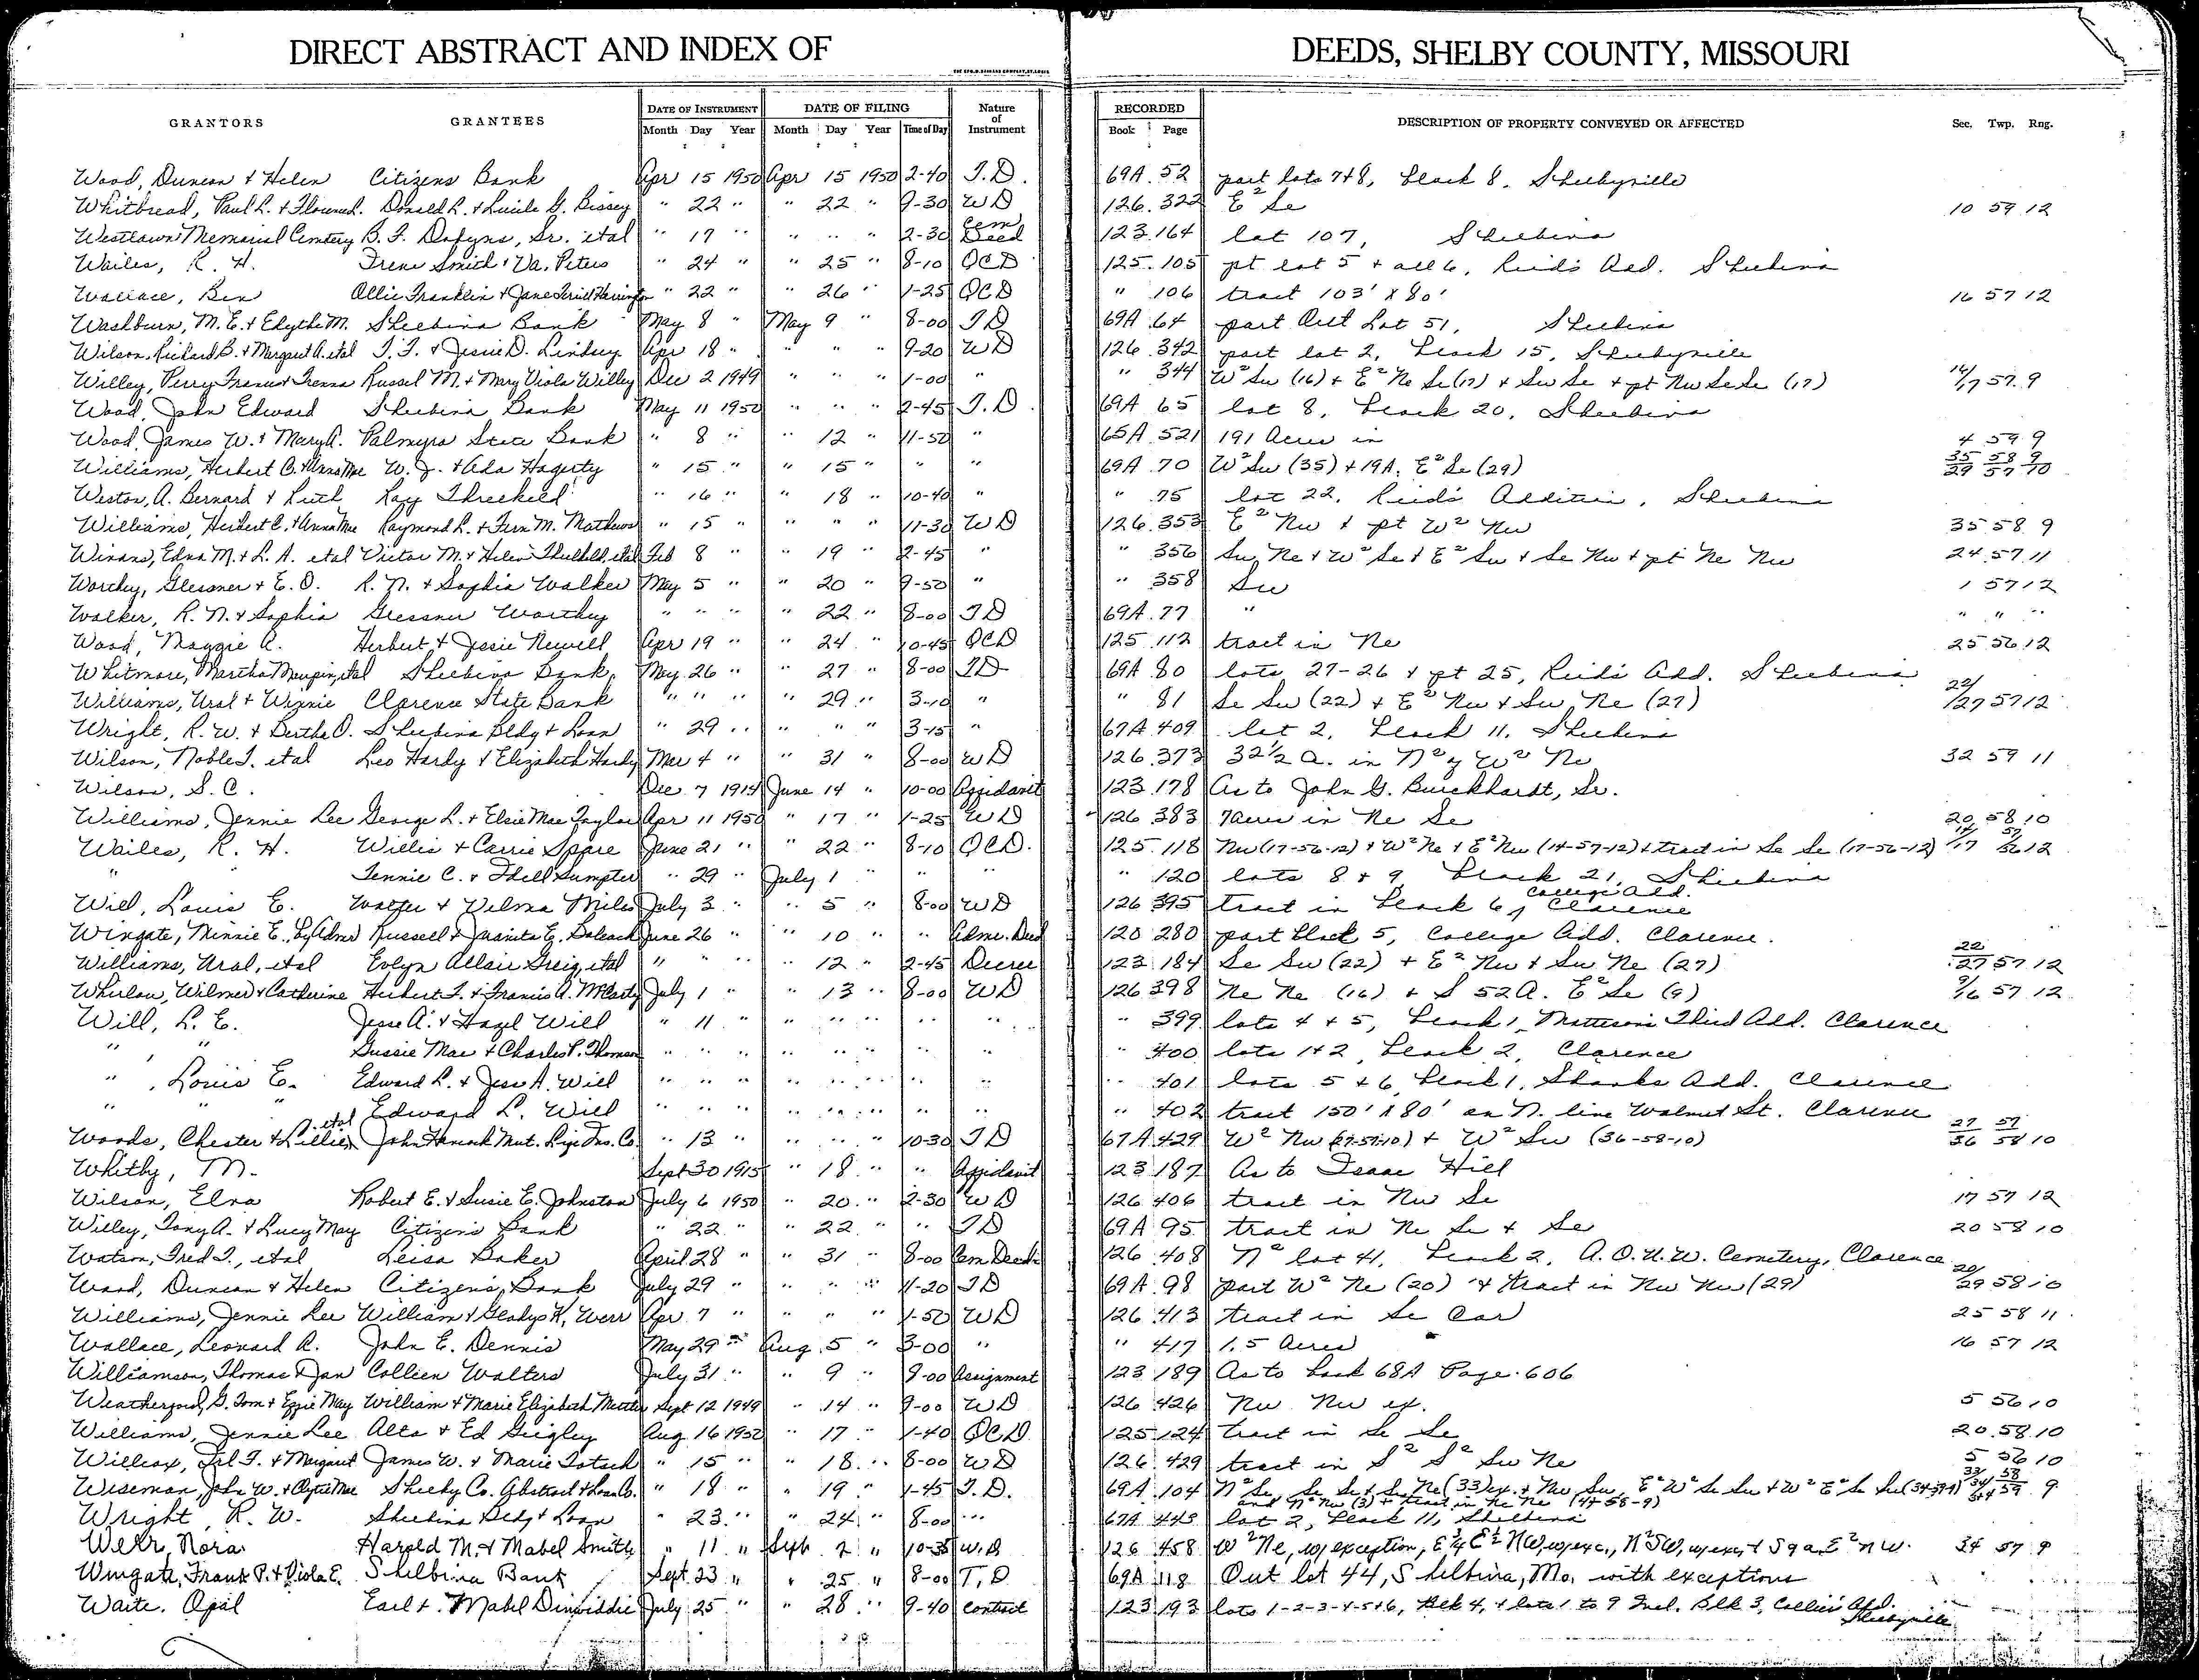 DIRECT ABSTRACT AND INDEX OF DEEDS, SHELBY COUNTY, MISSOURI
GRANTORS GRANTEES DATE OF INSTRUMENT DATE OF FILING Nature of Instrument RECORDED DESCRIPTION OF PROPERTY CONVEYED OR AFFECTED Sec. Twp. Rng.
Month Day Year Month Day Year Time of Day Book Page
Wood, Duncan & Helen Citizens Bank Apr 15 1950 Apr 15 1950 2-40 T.D. 69A 52 part lots 7+8, block 8, Shelbyville
Whitbread, Paul L. & Donald R. & Lucile G. Bissey " 22 " " 22 " 9-30 WD 126 322 E² Se 10 59 12
Westlawn Memorial Cemetery B. F. Dofyns, Sr. etal " 17 " " " " 2-30 Cem Deed 123 164 lot 107, Shelbina
Wailes, R. H. Irene Smith & Va. Peters " 24 " " 25 " 8-10 QCD 125 105 pt lot 5 + all 6, Reid's Add. Shelbina
Wallace, Ben Ollie Franklin & Jane Terrill Harrington " 22 " " 26 " 1-25 QCD " 106 tract 103' x 80' 16 57 12
Washburn, M. E. & Edythe M. Shelbina Bank May 8 " May 9 " 8-00 TD 69A 64 part Out Lot 51, Shelbina
Wilson, Richard B. & Margaret A. etal T. F. & Jessie D. Lindsey Apr 18 " " " " 9-20 WD 126 342 part lot 2, block 15, Shelbyville
Willey, Perry Franus & Trenna Russel M. & Mary Viola Willey Dec 2 1949 " " " 1-00 " " 344 W² Sw (16) + E² Ne Se (17) + Sw Se + pt Nw Se Se (17) 16/17 57 9
Wood, John Edward Shelbina Bank May 11 1950 " " " 2-45 T.D. 69A 65 lot 8, block 20, Shelbina
Wood, James W. & Mary A. Palmyra State Bank " 8 " " 12 " 11-50 " 65A 521 191 Acres in 4 59 9
Williams, Herbert C. & Anna Mae W. J. & Ada Hagerty " 15 " " 15 " " " 69A 70 W² Sw (35) + 19A. E² Se (29) 35 58 9 29 57 10
Weston, A. Bernard & Ruth Ray Threlkeld " 16 " " 18 " 10-40 " " 75 lot 22, Reid's Addition, Shelbina
Williams, Herbert C. & Anna Mae Raymond L. & Fern M. Mathews " 15 " " " " 11-30 WD 126 353 E² Nw + pt W² Nw 35 58 9
Winans, Edna M. & L. A. etal Victor M. & Helen Threlkeld, etal Feb 8 " " 19 " 2-45 " " 356 Sw Ne + W² Se + E² Sw + Se Nw + pt Ne Nw 24 57 11
Worthy, Glessner & E. O. R. N. & Sophia Walker May 5 " " 20 " 9-50 " " 358 Sw 1 57 12
Walker, R. N. & Sophia Glessner Worthy " " " " 22 " 8-00 TD 69A 77 " " " "
Wood, Maggie A. Herbert & Jessie Newell Apr 19 " " 24 " 10-45 QCD 125 112 tract in Ne 25 56 12
Whitmore, Martha Maupin, etal Shelbina Bank May 26 " " 27 " 8-00 TD 69A 80 lots 27-26 + pt 25, Reid's Add. Shelbina
Williams, Ural & Winnie Clarence State Bank " " " " 29 " 3-10 " " 81 Se Sw (22) + E² Nw + Sw Ne (27) 22/27 57 12
Wright, R. W. & Bertha O. Shelbina Bldg & Loan " 29 " " " " 3-15 " 67A 409 lot 2, block 11, Shelbina
Wilson, Noble T. etal Leo Hardy & Elizabeth Hardy Mar 4 " " 31 " 8-00 WD 126 373 32½ A. in N² of W² Ne 32 59 11
Wilson, S. C. Dec 7 1914 June 14 " 10-00 Affidavit 123 178 As to John G. Burckhardt, Sr.
Williams, Jennie Lee George L. & Elsie Mae Taylor Apr 11 1950 " 17 " 1-25 WD 126 383 7 acres in Ne Se 20 58 10
Wailes, R. H. Willis & Carrie Spare June 21 " " 22 " 8-10 QCD. 125 118 Nw (17-56-12) + W² Ne + E² Nw (14-57-12) + tract in Se Se (17-56-12) 14/17 57/56 12
" Tennie C. & Idell Sumpter " 29 " July 1 " " " " 120 lots 8 + 9, block 21, Shelbina
Will, Louis E. Walter & Velma Miles July 3 " " 5 " 8-00 WD 126 395 tract in block 6, College Add. Clarence
Wingate, Minnie E., by Admr Russell & Juanita E. June 26 " " 10 " " Admr. Deed 120 280 part block 5, College Add. Clarence.
Williams, Ural, etal Evlyn Allair Greig, etal " " " " 12 " 2-45 Decree 123 184 Se Sw (22) + E² Nw + Sw Ne (27) 22/27 57 12
Whitlow, Wilmer & Catherine Herbert T. & Francis A. McCarty July 1 " " 13 " 8-00 WD 126 398 Ne Ne (16) + S 52A. E² Se (9) 9/16 57 12
Will, L. E. Jesse A. & Hazel Will " 11 " " " " " " " 399 lots 4 + 5, block 1, Matteson's Third Add. Clarence
" " Gussie Mae & Charles P. Thomson " " " " " " " " " 400 lots 1+2, block 2, Clarence
", Louis E. Edward L. & Jesse A. Will " " " " " " " " " 401 lots 5 + 6, block 1, Shanks Add. Clarence
" " " Edward L. Will " " " " " " " " " 402 tract 150' x 80' on N. line Walnut St. Clarence
Woods, Chester & Lillie A. etal John Hancock Mut. Life Ins. Co. " 13 " " " " 10-30 TD 67A 429 W² Nw (27-57-10) + W² Sw (36-58-10) 27 57 36 58 10
Whitby, M. Sept 30 1915 " 18 " " Affidavit 123 187 As to Isaac Hill
Wilson, Elva Robert E. & Susie E. Johnston July 6 1950 " 20 " 2-30 WD 126 406 tract in Nw Se 17 57 12
Willey, Tony A. & Lucy May Citizens Bank " 22 " " 22 " " TD 69A 95 tract in Ne Se + Se 20 58 10
Watson, Fred T., etal Leisa Baker April 28 " " 31 " 8-00 Cem Deed 126 408 N² lot 41, block 2, A.O.U.W. Cemetery, Clarence
Wood, Duncan & Helen Citizens Bank July 29 " " " " 11-20 TD 69A 98 part W² Ne (20) + tract in Nw Ne (29) 20/29 58 10
Williams, Jennie Lee William & Gladys K. Werr Apr 7 " " " " 1-50 WD 126 413 tract in Se Cor 25 58 11
Wallace, Leonard R. John E. Dennis May 29 " Aug 5 " 3-00 " " 417 1.5 Acres 16 57 12
Williamson, Thomas & Jan Colleen Walters July 31 " " 9 " 9-00 Assignment 123 189 As to book 68A Page 606
Weatherford, G. Tom & Effie May William & Marie Elizabeth Sept 12 1949 " 14 " 9-00 WD 126 426 Nw Nw ex. 5 56 10
Williams, Jennie Lee Alta & Ed Geigley Aug 16 1950 " 17 " 1-40 QCD 125 124 tract in Se Se 20 58 10
Willcox, T. & Margaret James W. & Marie " 15 " " 18 " 8-00 WD 126 429 tract in S² S² Sw Ne 5 56 10
Wiseman, John W. & Clytie Mae Shelby Co. Abstract & Loan Co. " 18 " " 19 " 1-45 T.D. 69A 104 N² Se, Se Se + Se Ne (33) ex. + Nw Sw, E² W² Se Sw + W² E² Se Sw 9
and N² Nw (3) + tract in Ne Ne (4-58-9)
Wright, R. W. Shelbina Bldg & Loan " 23 " " 24 " 8-00 " 67A 443 lot 2, block 11, Shelbina
Werr, Nora Harold M. & Mabel Smith " 11 " Sept 2 " 10-35 W.D. 126 458 W² Ne, w/exception, E¾ E½ NW, w/exc., N² SW, w/exc, + S 9 a. E² NW. 34 57 9
Wingate, Frank P. & Viola E. Shelbina Bank Sept 23 " " 25 " 8-00 T.D 69A 118 Out lot 44, Shelbina, Mo. with exceptions
Waite, Opal Earl & Mabel Dinwiddie July 25 " " 28 " 9-40 Contract 123 193 lots 1-2-3-4-5+6, Blk 4, + lots 1 to 9 Incl. Blk 3, Collier Add. Shelbyville